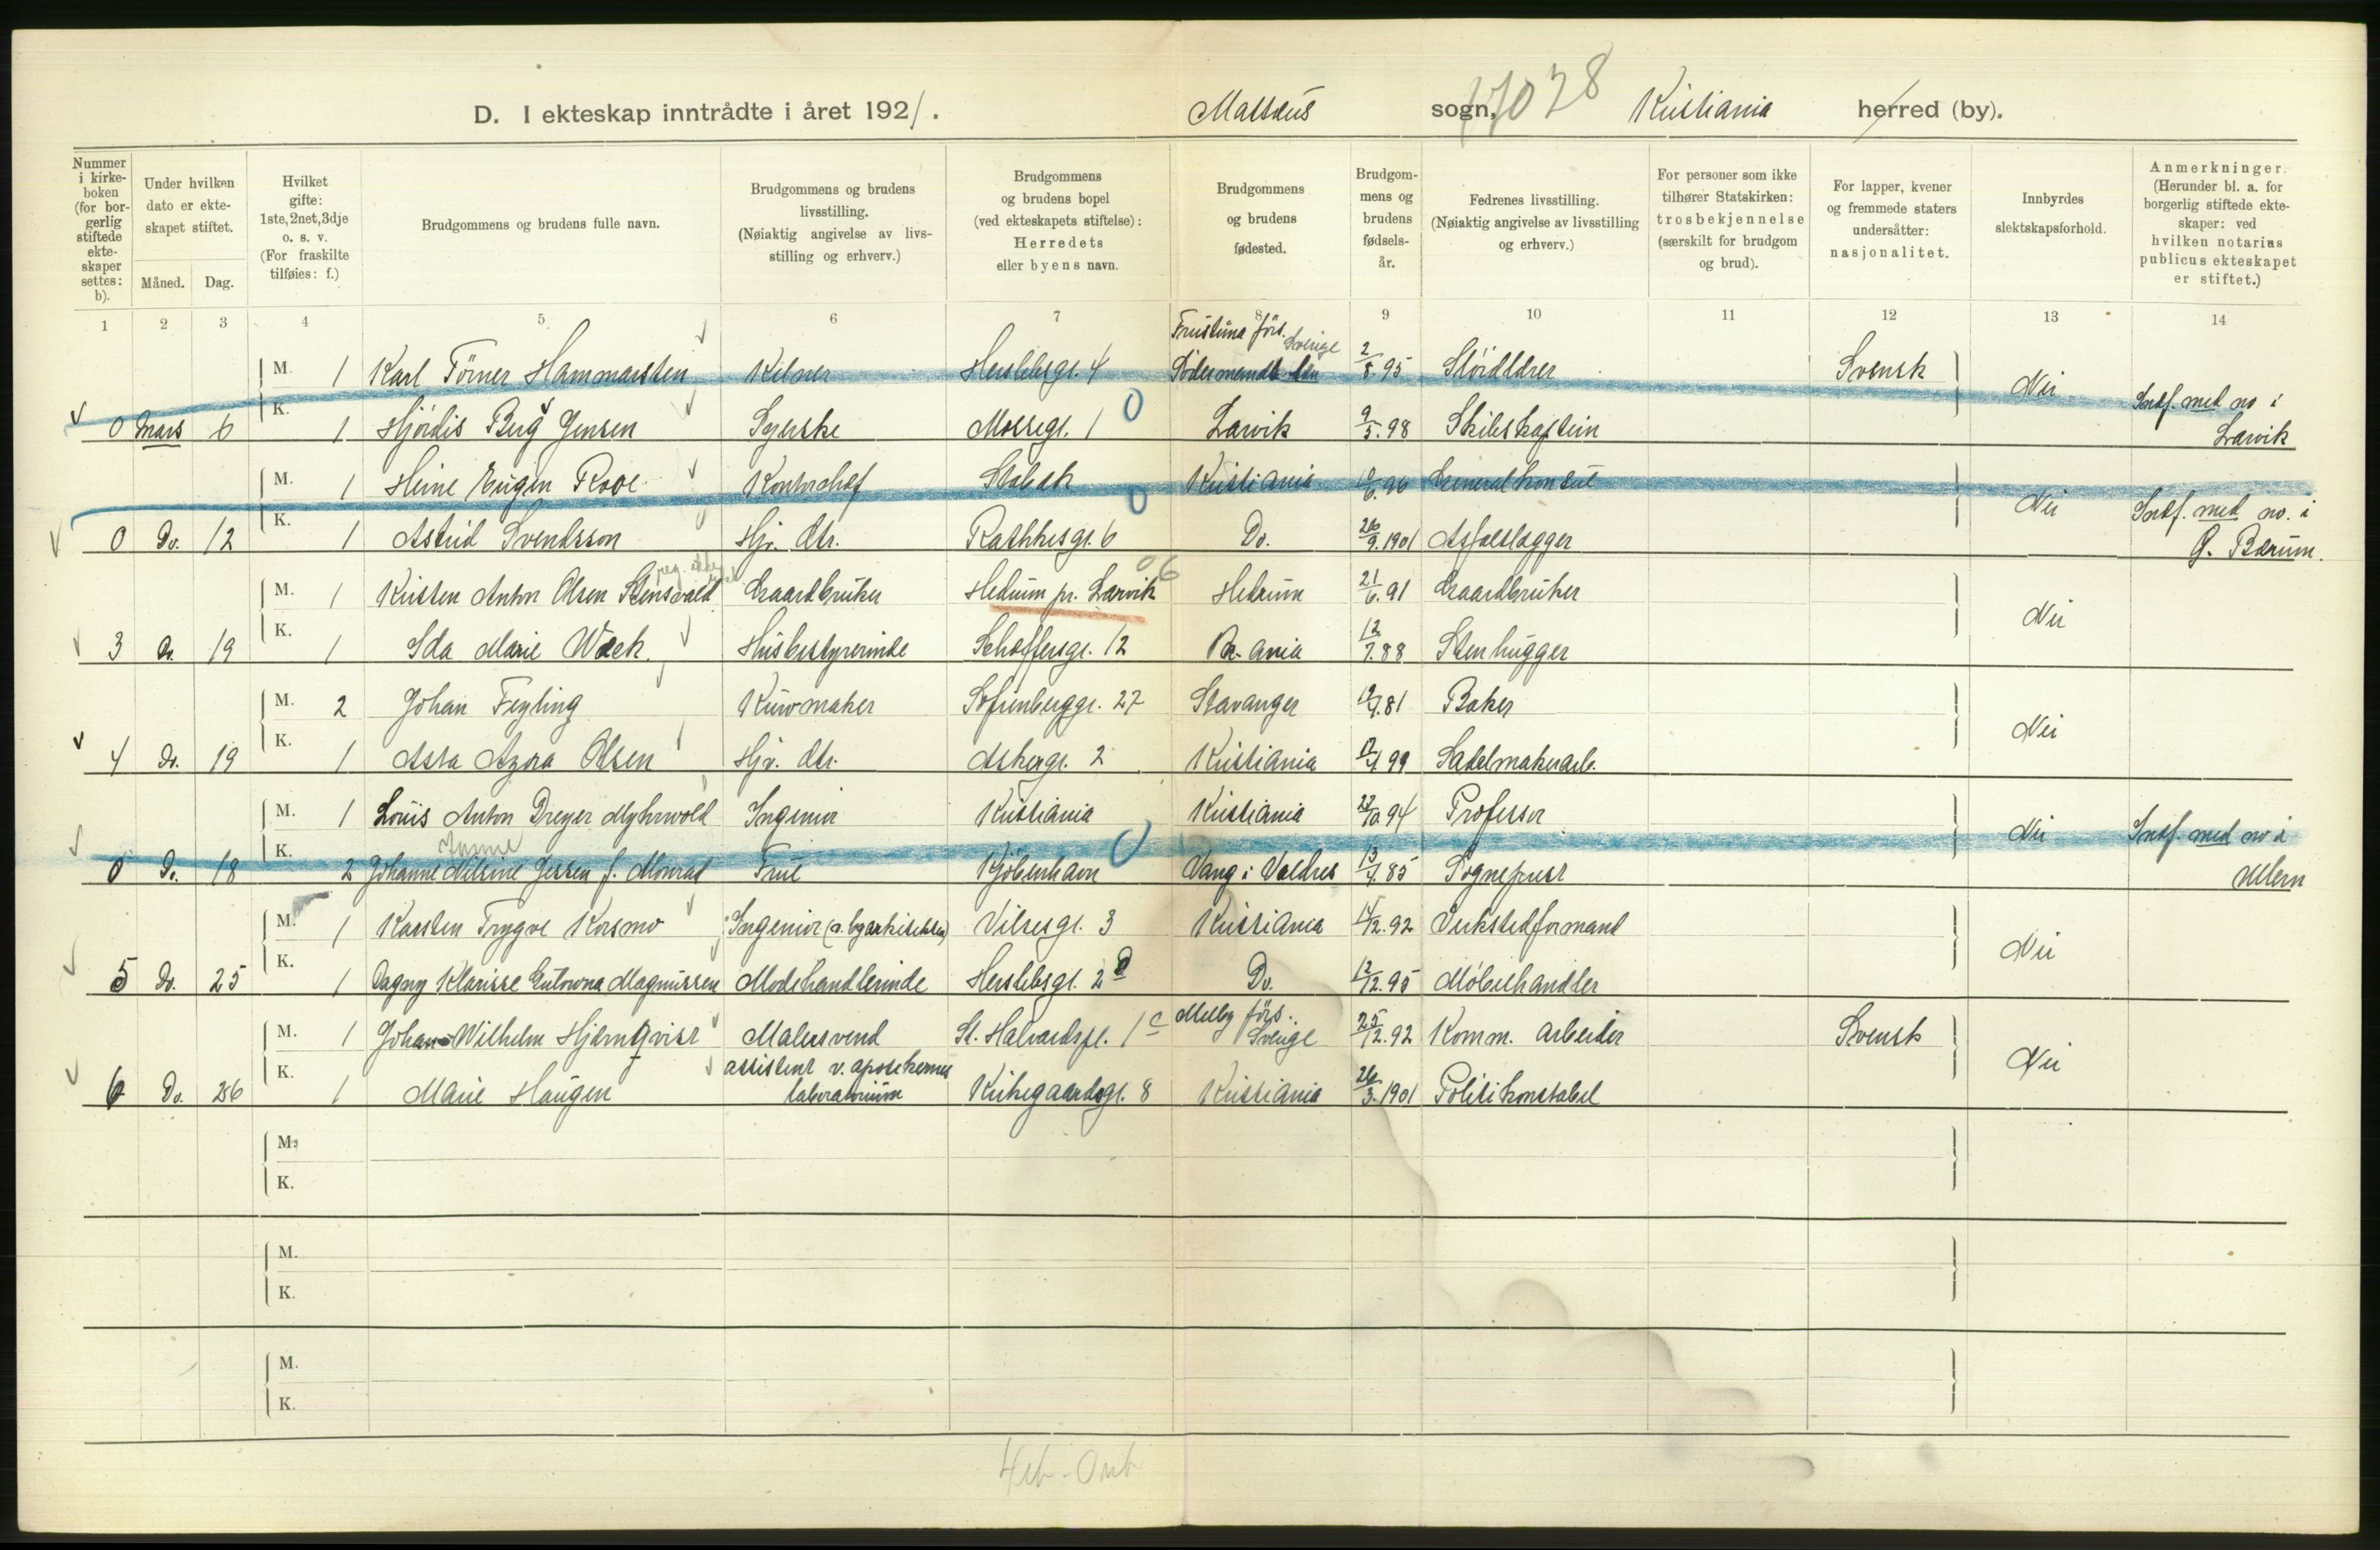 D. I ekteskap inntrådte i året 1921. Mattæus sogn, Kristiania herred (by).
Nummer i kirkeboken (for borgerlig stiftede ekteskaper settes: b).
Under hvilken dato er ekteskapet stiftet.
Måned. Dag.
Hvilket gifte: 1ste, 2net, 3dje o. s. v. (For fraskilte tilføies: f.)
Brudgommens og brudens fulle navn.
Brudgommens og brudens livsstilling. (Nøiaktig angivelse av livsstilling og erhverv.)
Brudgommens og brudens bopel (ved ekteskapets stiftelse): Herredets eller byens navn.
Brudgommens og brudens fødested.
Brudgommens og brudens fødselsår.
Fedrenes livsstilling. (Nøiaktig angivelse av livsstilling og erhverv.)
For personer som ikke tilhører Statskirken: trosbekjennelse (særskilt for brudgom og brud).
For lapper, kvener og fremmede staters undersåtter: nasjonalitet.
Innbyrdes slektskapsforhold.
Anmerkninger. (Herunder bl. a. for borgerlig stiftede ekteskaper: ved hvilken notarius publicus ekteskapet er stiftet.)
1 2 3 4 5 6 7 8 9 10 11 12 13 14
M. 1 Karl Törner Hammarsten Kelner Herslebsgt. 4 förs. Sverige 2/8. 95 Svensk Nei
K. 0 Mars 6 1 Hjördis Berg Jensen Syerske Mossegt. 1 Larvik 9/5. 98 Skibskaptein Indf. med no i Larvik
M. 1 Heine Eugen Rooe Kontorchef Stabæk Kristiania Generalkonsul Nei
K. 0 Do. 12 1 Astrid Svendsson Hjv. dtr. Rathkesgt. 6 Do. 26/9. 1901 Asfaltlægger Indf. med no. i Ø. Bærum.
M. 1 Kristen Anton Olsen Stensvold Gaardbruker Hedrum pr. Larvik Hedrum 21/6. 91 Gaardbruker Nei
K. 3 Do. 19 1 Ida Marie Wæck Husbestyrerinde Schøffersgt. 12 Kr.ania 12/7. 88 Stenhugger
M. 2 Johan Feyling Kurvmaker Sofienberggt. 27 Stavanger Baker Nei
K. 4 Do. 19 1 Asta Azora Olsen Hjv. dtr. Askergt. 2 Kristiania Sadelmakerarb.
M. 1 Louis Anton Dreyer Myhrwold Ingeniør Kristiania Kristiania 27/10. 94 Professor Nei Indf. med no i
K. 0 Do. 18 2 Johanne Nilsine Jessen f. Monrad Frue Kjöbenhavn Vang i Valdres 13/4. 85 Sogneprest Ullern
M. 1 Karsten Trygve Korsmo Ingeniør (a. byarkitekten) Vibesgt. 3 Kristiania 14/12. 92 Verkstedformand Nei
K. 5 Do. 25 1 Dagny Klarisse Magnussen Modehandlerinde Herslebsgt. 2 D Do. 12/12. 95 Möbelhandler
M. 1 Johan Wilhelm Hjärnqvist Malersvend St. Halvardspl. 1 c Melby förs. Sverige 25/12. 92 Komm. arbeider Svensk Nei
K. 6 Do. 26 1 Marie Haugen assistent v. apotekernes laboratorium Kirkegaardsgt. 8 Kristiania 26/3. 1901 Politikonstabel
M.
K.
M.
K.
M.
K.